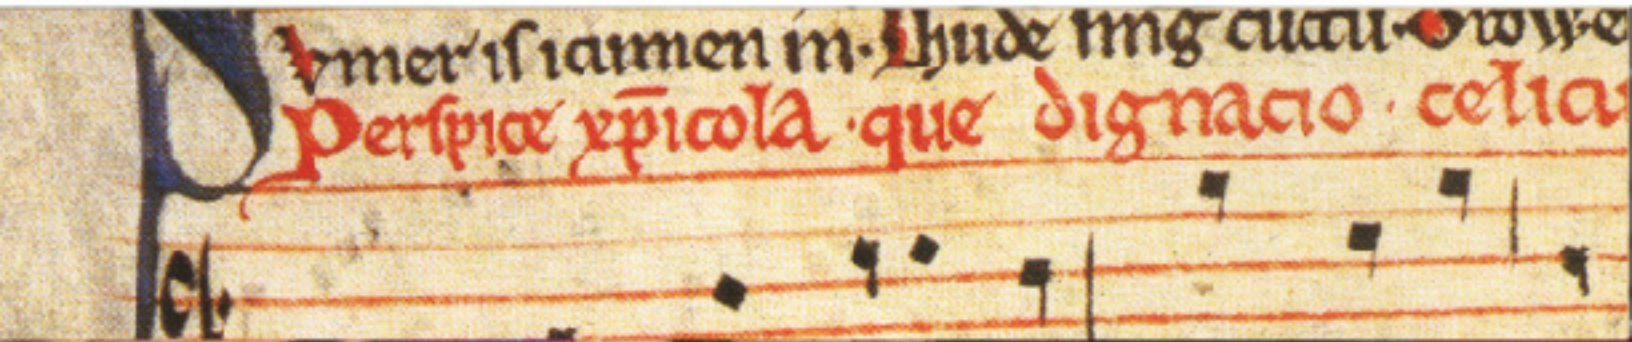 Svmer is icumen in. Lhude sing cuccu. Growe
Perspice xp̄icola. que dignacio. celicu